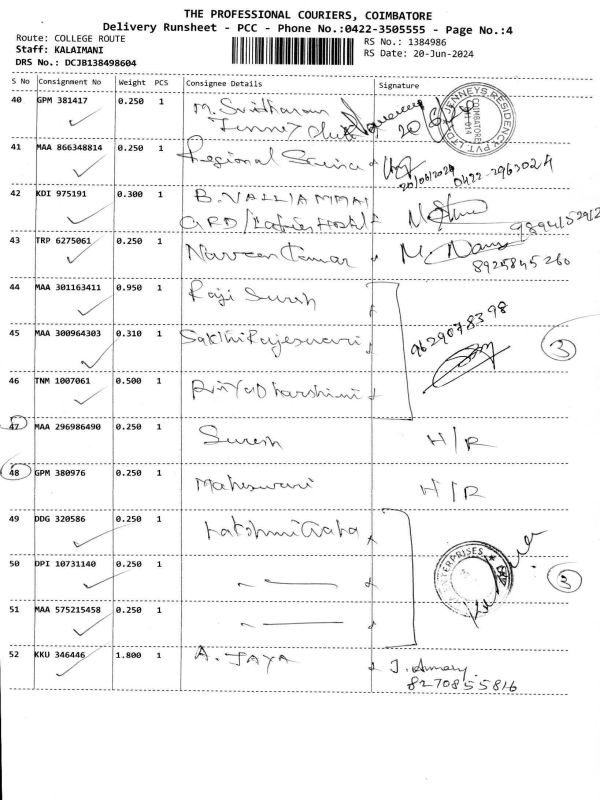 THE PROFESSIONAL COURIERS, COIMBATORE
Delivery Runsheet - PCC - Phone No.:0422-3505555 - Page No.:4
Route: COLLEGE ROUTE
Staff: KALAIMANI
DRS No.: DCJB138498604
RS No.: 1384986
RS Date: 20-Jun-2024
S No Consignment No Weight PCS Consignee Details Signature
40 GPM 381417 0.250 1 M. Sridharan
Jenney Club
JENNEYS RESIDENCY PVT LTD
COIMBATORE
641 014
41 MAA 866348814 0.250 1 Regional Science
20/06/2024 0422-2963024
42 KDI 975191 0.300 1 B. VALLIAMMAI
GRD / Ladies Hostel
9894152912
43 TRP 6275061 0.250 1 Naveen Kumar
8925845260
44 MAA 301163411 0.950 1 Raji Suresh
45 MAA 300964303 0.310 1 Sakthi Rajeswari 9629078398 3
46 TNM 1007061 0.500 1 PriyaDharshini
47 MAA 296986490 0.250 1 Suresh H/R
48 GPM 380976 0.250 1 Maheswari H/R
49 DDG 320586 0.250 1
50 DPI 10731140 0.250 1 ENTERPRISES 3
51 MAA 575215458 0.250 1
52 KKU 346446 1.800 1 A. JAYA
8270855816